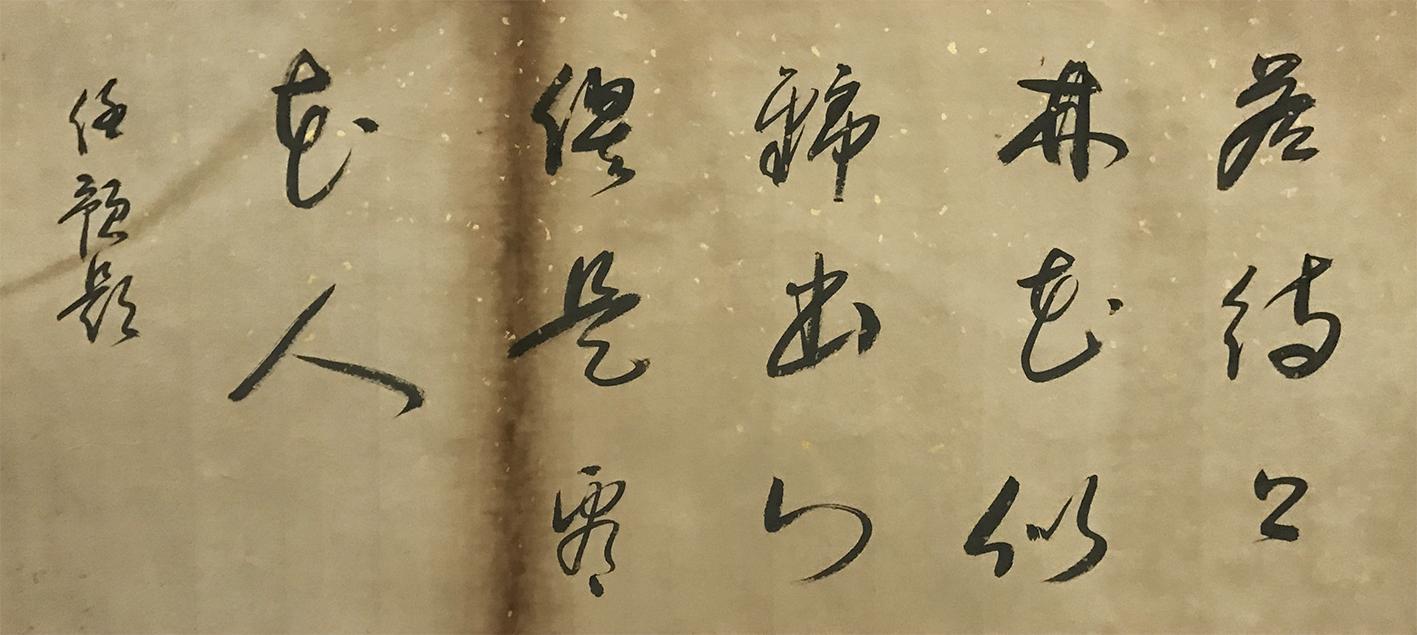 若待上
林花似
錦出门
俱是看
花人
任預題